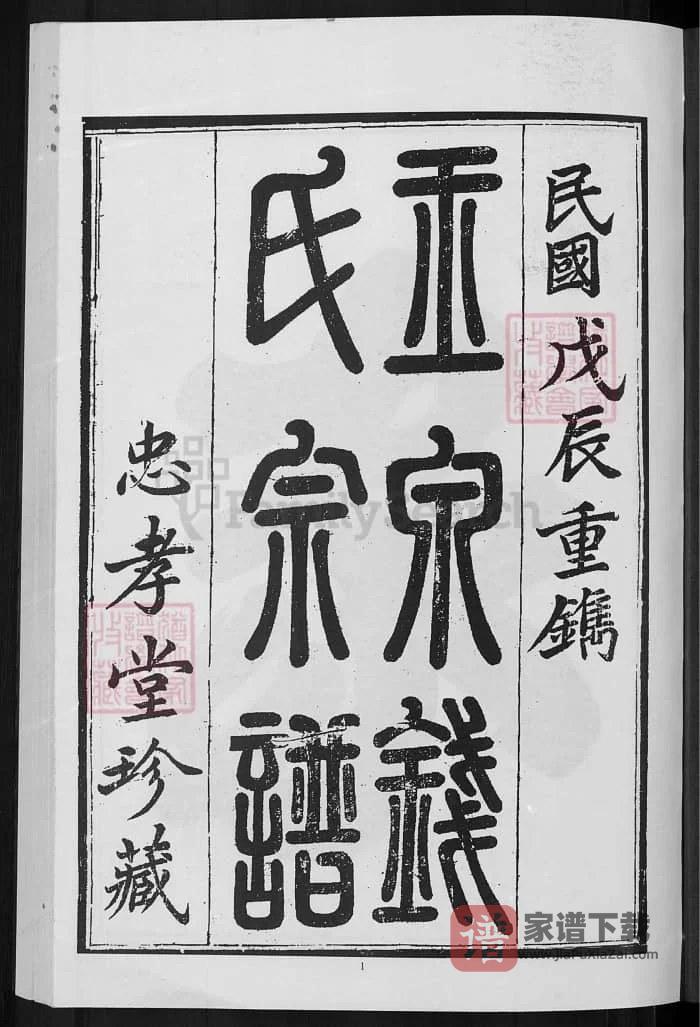 民國戊辰重鐫
玉泉錢
氏宗譜
忠孝堂珍藏
FamilySearch
谱 家谱下载
www.jiaPuxiazai.com
1